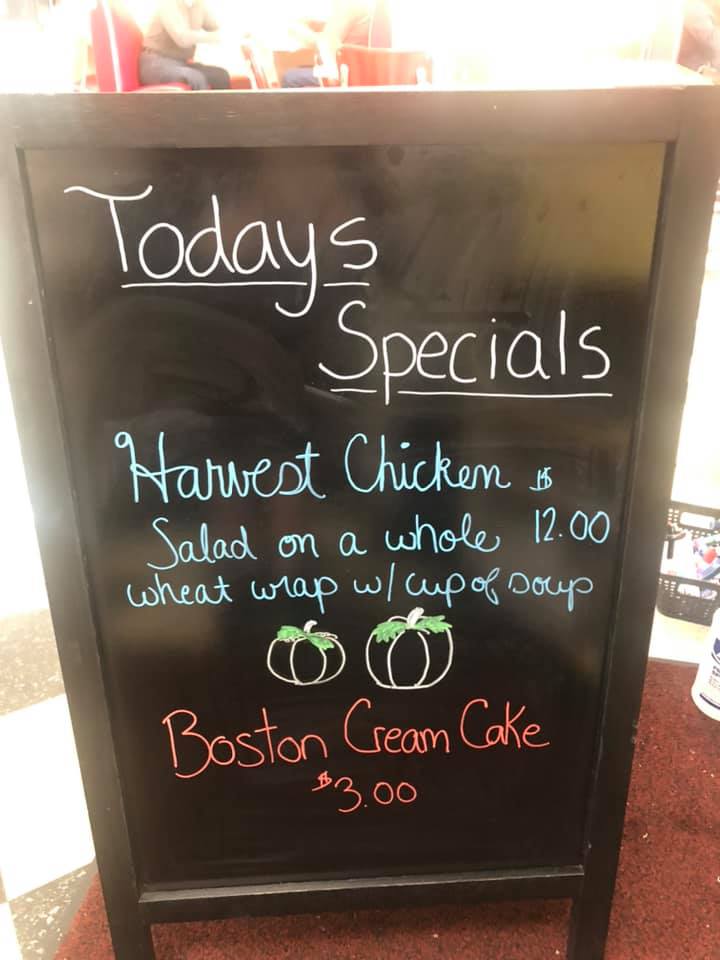 Todays
Specials
Harvest Chicken $
Salad on a whole 12.00
wheat wrap w/ cup of soup
Boston Cream Cake
$3.00